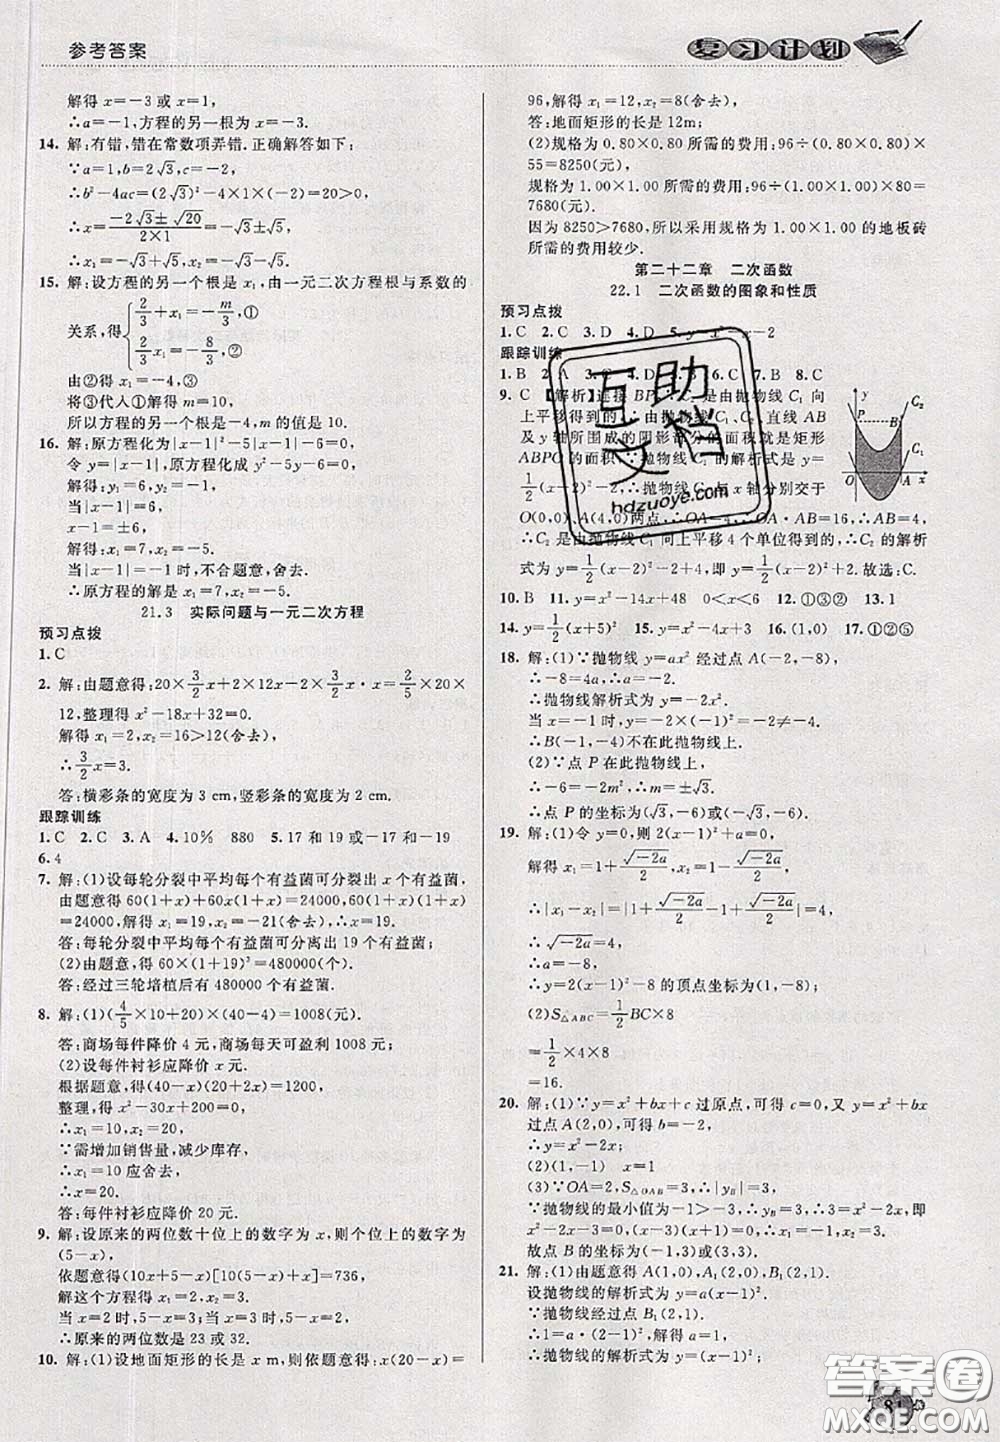 参考答案
复习计划
解得 x=-3或 x=1,
∴a=-1,方程的另一根为 x=-3.
14. 解:有错,错在常数项弄错.正确解答如下:
∵a=1,b=2√3,c=-2,
∴b²-4ac=(2√3)²-4×1×(-2)=20>0,
∴x=(-2√3±√20)/(2×1)=-√3±√5,
∴x₁=-√3+√5,x₂=-√3-√5.
15. 解:设方程的另一个根是 x₁,由一元二次方程根与系数的
关系,得{2/3+x₁=-m/3,①
2/3x₁=-8/3,②
由②得得 x₁=-4,③
将③代人①解得 m=10,
所以方程的另一个根是-4,m的值是10.
16. 解:原方程化为|x-1|²-5|x-1|-6=0,
令 y=|x-1|,原方程化成 y²-5y-6=0,
解得:y₁=6,y₂=-1,
当|x-1|=6,
x-1=±6,
解得:x₁=7,x₂=-5.
当|x-1|=-1时,不合题意,舍去.
∴原方程的解是 x₁=7,x₂=-5.
21.3 实际问题与一元二次方程
预习点拨
1. C
2. 解:由题意得:20×3/2x+2×12x-2×3/2x·x=2/5×20×
12,整理得 x²-18x+32=0.
解得 x₁=2,x₂=16>12(舍去),
∴3/2x=3.
答:横彩条的宽度为 3 cm,竖彩条的宽度为 2 cm.
跟踪训练
1. C 2. C 3. A 4. 10% 880 5. 17 和 19 或-17 和-19
6. 4
7. 解:(1)设每轮分裂中平均每个有益菌可分裂出 x 个有益菌,
由题意得 60(1+x)+60x(1+x)=24000,60(1+x)(1+x)
=24000,解得 x₁=19,x₂=-21(舍去),∴x=19.
答:每轮分裂中平均每个有益菌可分离出 19 个有益菌;
(2)由题意,得 60×(1+19)³=480000(个).
答:经过三轮培植后有 480000 个有益菌.
8. 解:(1)(4/5×10+20)×(40-4)=1008(元).
答:商场每件降价 4 元,商场每天可盈利 1008 元;
(2)设每件衬衫应降价 x 元.
根据题意,得(40-x)(20+2x)=1200,
整理,得 x²-30x+200=0,
∴x₁=10,x₂=20,
∵需增加销售量,减少库存,
∴x₁=10 应舍去,
∴x=20.
答:每件衬衫应降价 20 元.
9. 解:设原来的两位数十位上的数字为 x,则个位上的数字为
(5-x),
依题意得(10x+5-x)[10(5-x)+x]=736,
解这个方程得 x₁=2,x₂=3,
当 x=2 时,5-x=3;当 x=3 时,5-x=2,
∴原来的两位数是 23 或 32.
10. 解:(1)设地面矩形的长是 x m,则依题意得:x(20-x)=
96,解得 x₁=12,x₂=8(舍去),
答:地面矩形的长是 12m;
(2)规格为 0.80×0.80 所需的费用:96÷(0.80×0.80)×
55=8250(元).
规格为 1.00×1.00 所需的费用:96÷(1.00×1.00)×80=
7680(元).
因为 8250>7680,所以采用规格为 1.00×1.00 的地板砖
所需的费用较少.
第二十二章 二次函数
22.1 二次函数的图象和性质
预习点拨
1. C 2. C 3. D 4. D 5. y=x²-x-2
跟踪训练
1. B 2. A 3. 4. D 5. B 6. C 7. B 8. C
9. C 【解析】连接 BP C₂ 是由抛物线 C₁ 向
上平移得到的 ∴由抛物线 C₁、C₂、直线 AB
及 y 轴所围成的阴影部分的面积就是矩形
ABPO 的面积 ∵抛物线 C₁ 的解析式是 y=
1/2(x-2)²-2,∴抛物线 C₁ 与 x 轴分别交于
O(0,0)、A(4,0)两点,∴OA=4,∴OA·AB=16,∴AB=4,
∴C₂ 是由抛物线 C₁ 向上平移 4 个单位得到的,∴C₂ 的解析
式为 y=1/2(x-2)²-2+4,即 y=1/2(x-2)²+2.故选:C.
y
C₂
P
B
C₁
O
A
x
10. B 11. y=x²-14x+48 0<x<6 12. ①③② 13. 1
14. y=1/2(x+5)² 15. y=x²-4x+3 16. (1,0) 17. ①②⑤
18. 解:(1)∵抛物线 y=ax² 经过点 A(-2,-8),
∴-8=4a,∴a=-2,
∴抛物线解析式为 y=-2x².
当 x=-1 时,y=-2×(-1)²=-2≠-4.
∴B(-1,-4)不在此抛物线上.
(2)∵点 P 在此抛物线上,
∴-2m²=-6,∴m²=3,∴m=±√3.
∴点 P 的坐标为(√3,-6)或(-√3,-6).
19. 解:(1)令 y=0,则 2(x-1)²+a=0,
解得 x₁=1+√-2a/2,x₂=1-√-2a/2,
∴|x₁-x₂|=|1+√-2a/2-1+√-2a/2|=4,
∴√-2a=4,
∴a=-8,
∴y=2(x-1)²-8 的顶点坐标为(1,-8);
(2)S△ABC=1/2BC×8
=1/2×4×8
=16.
20. 解:(1)∵y=x²+bx+c 过原点,可得 c=0,又 y=x²+bx
过点 A(2,0),可得 b=-2,
∴y=x²-2x;
(2)(1,-1) x=1
(3)∵OA=2,S△OAB=3,∴|yB|=3,
∵抛物线的最小值为-1>-3,∴yB=3,∴x²-2x=3,
∴x²-2x-3=0,(x-3)(x+1)=0,∴x₁=-1,x₂=3.
故点 B 的坐标为(-1,3)或(3,3).
21. 解:(1)由题意得 A(1,0),A₁(2,0),B₁(2,1).
设抛物线的解析式为 y=a(x-1)²,
∵抛物线经过点 B₁(2,1),
∴1=a(2-1)²,解得 a=1.
∴抛物线的解析式为 y=(x-1)²;
互助文档
hdzuoye.com
答案圈
MXQE.COM
81